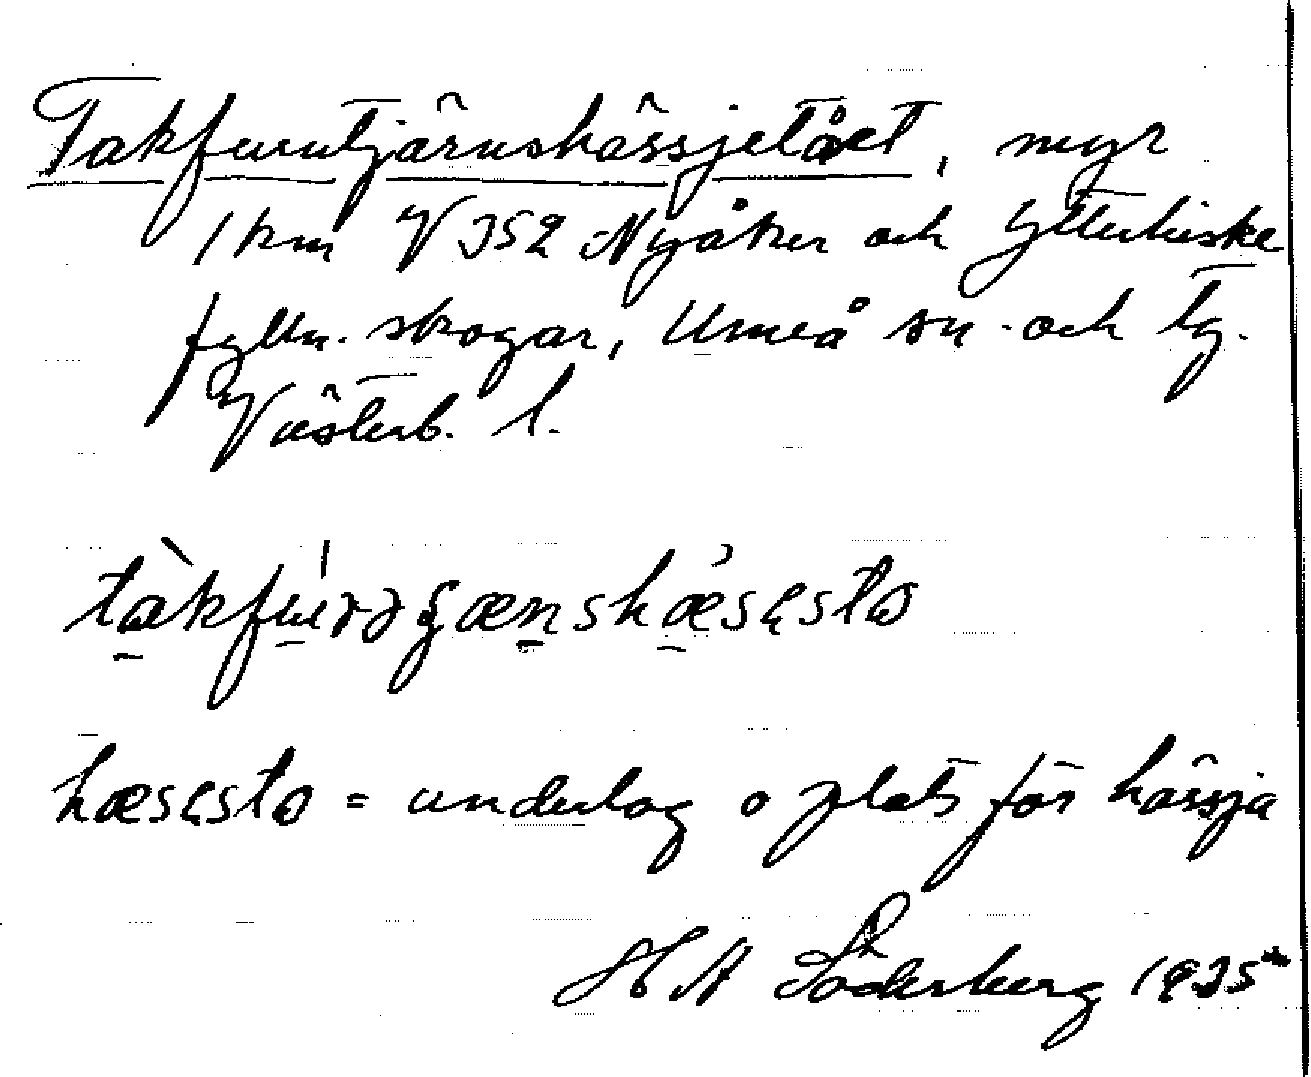 Takfurutjärnshässjetået, myr
1 km V 352 Nyåker och Ytterhiske
fylln. skogar, Umeå sn och tg.
Västerb. l.
hæsɛsto = underlag o plats för hässja
H A Söderberg 1935